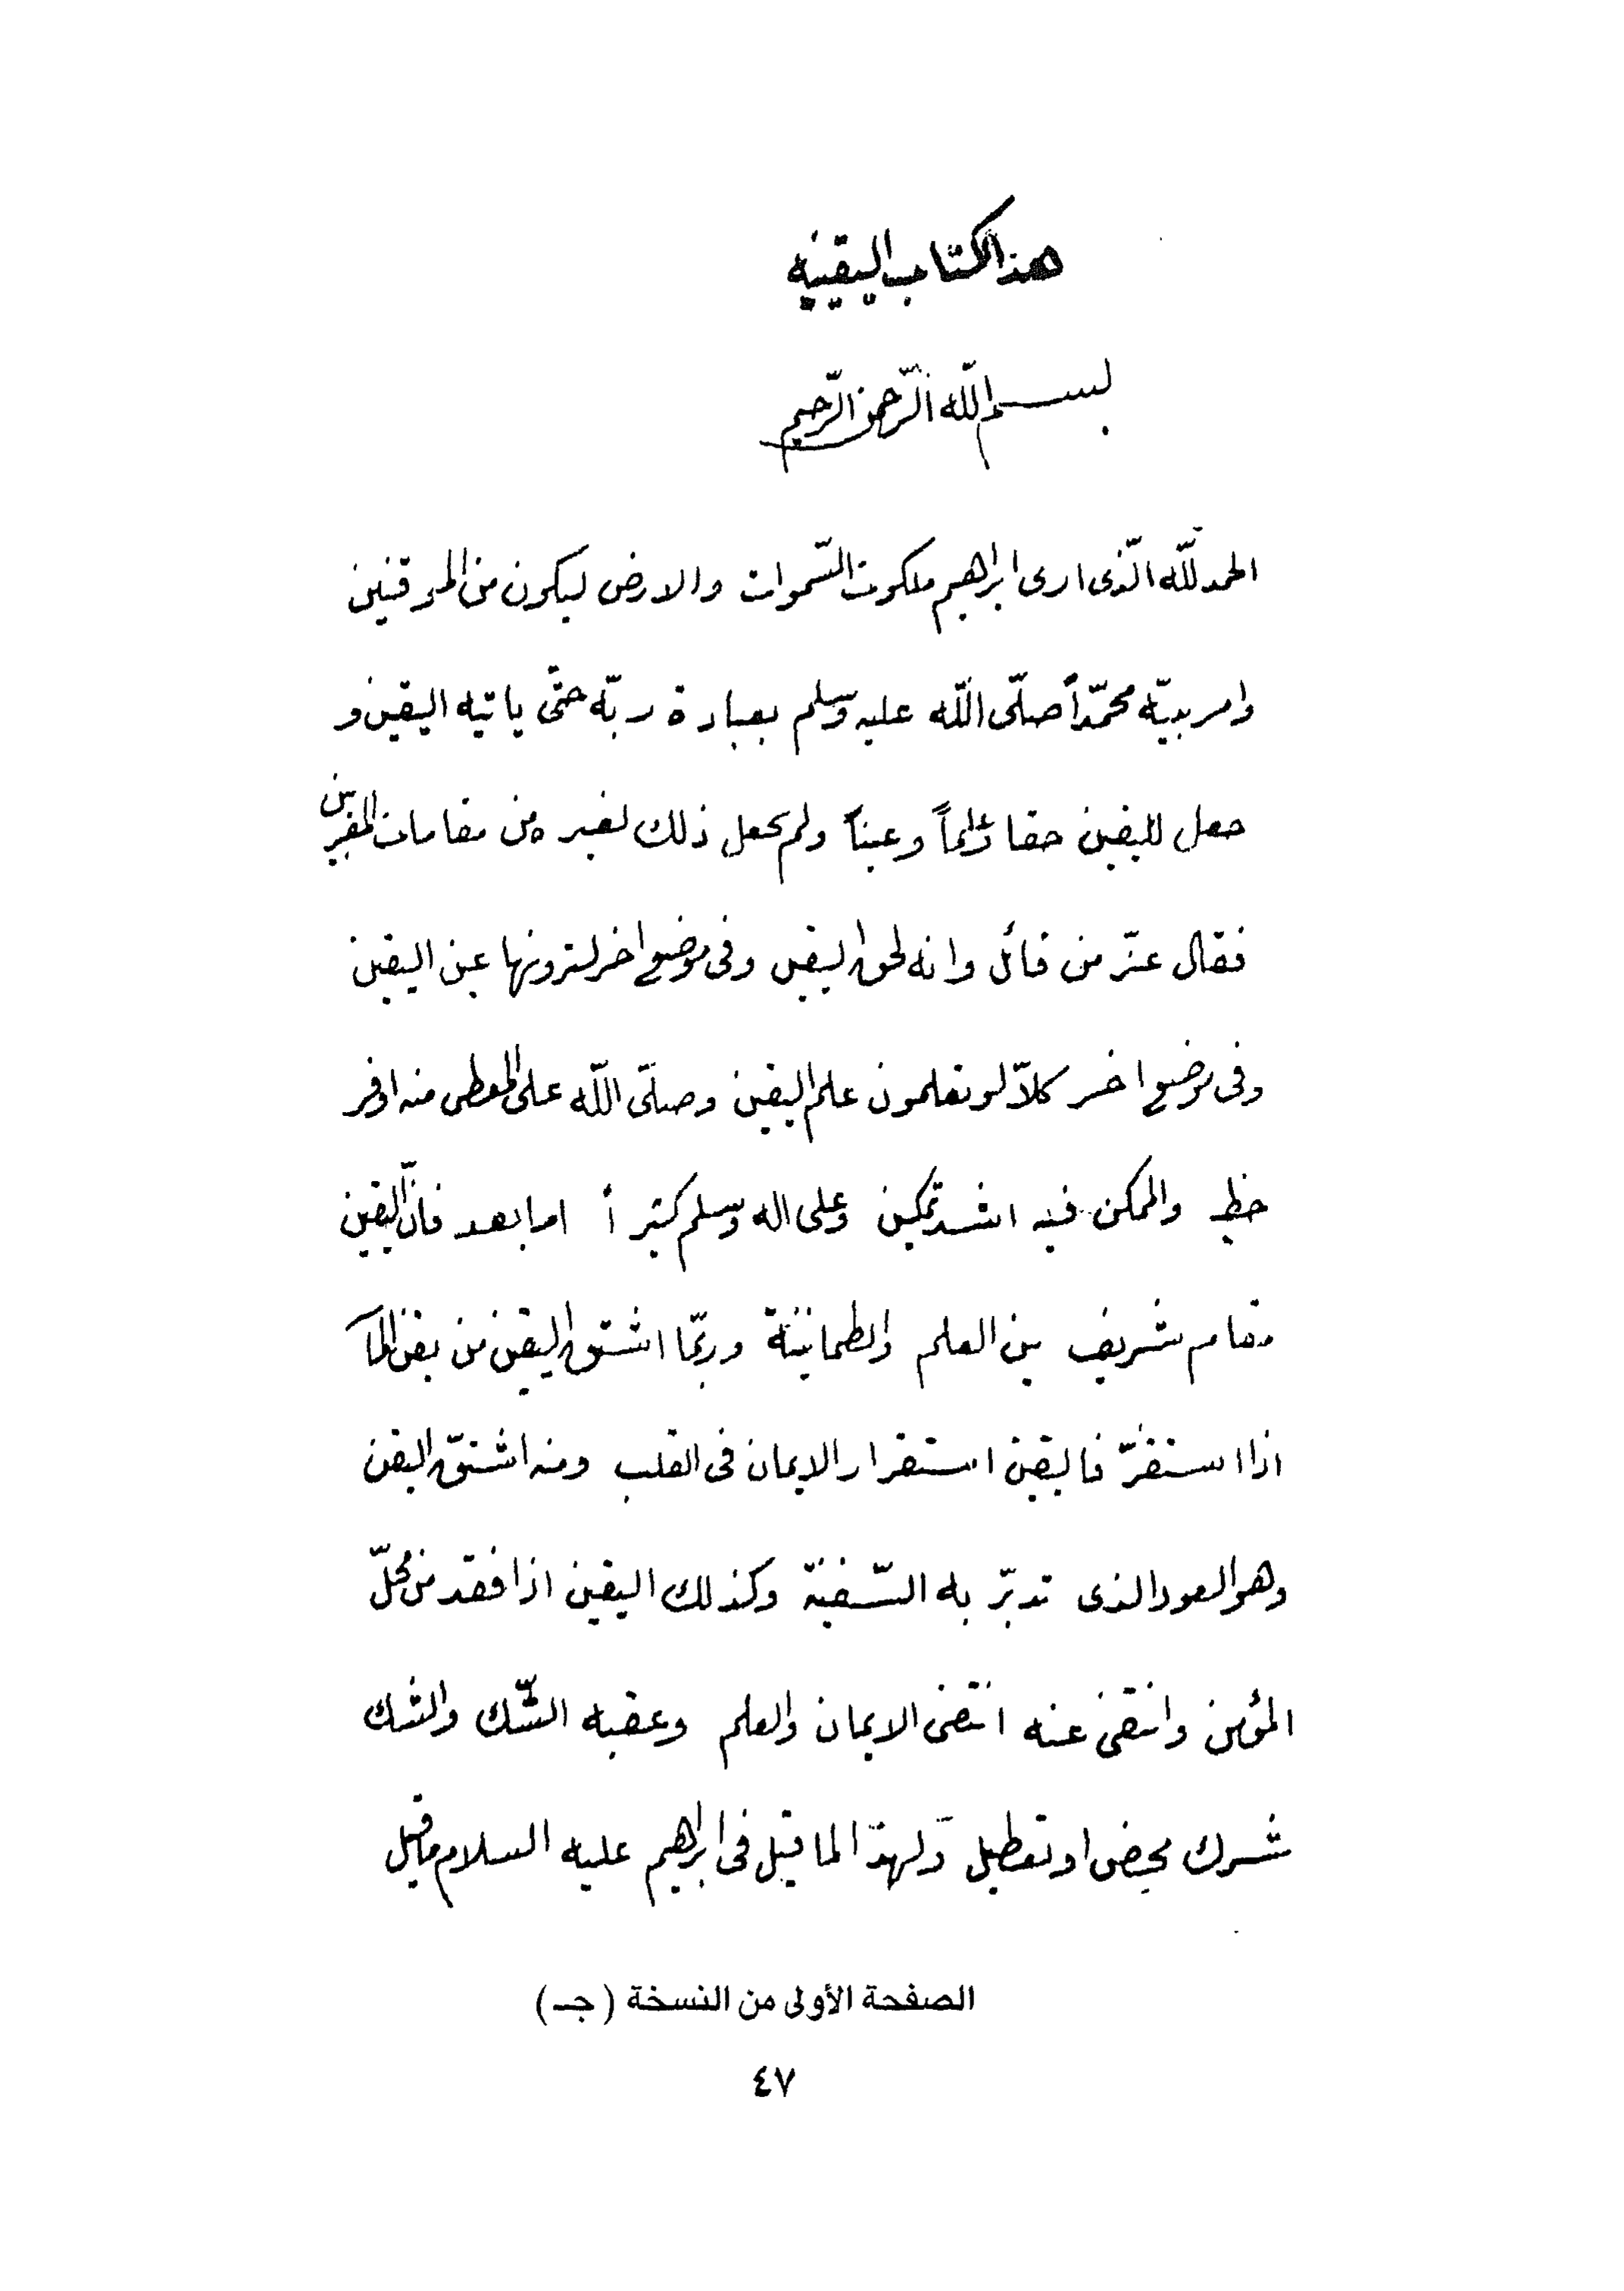 هذا كتاب اليقينيه
بسم الله الرّحمن الرّحيم
الحمد لله الّذى ارى ابراهيم ملكوت السّموات والارض ليكون من الموقنين
وامر نبيّه محمّداً صلّى اللّه عليه وسلم بعبادة ربّه حتّى ياتيه اليقين و
جعل لليقين حقا وعلماً وعيناً ولم يجعل ذلك لغيره من مقامات المقربين
فقال عزّ من قائل وانه لحق اليقين وفى موضع اخر لترونها عين اليقين
وفى موضع اخر كلاّ لو تعلمون علم اليقين وصلّى اللّه على المعطى منه اوفر
حظ والممكن فيه اشد تمكين وعلى اله وسلم كثيراً اما بعد فانّ اليقين
مقام شريف بين العلم والطمانينة وربّما اشتق اليقين من يقن المآ
اذا استقرّ فاليقين استقرار الايمان فى القلب ومنه اشتقّ اليقن
وهو العود الذى تدبّر به السّفينة وكذلك اليقين اذا فقد من محلّ
المؤمن وانتفى عنه انتفى الايمان والعلم وعقبه الشّك والشك
شرك محض او تعطيل ولهذا لما قيل فى ابراهيم عليه السلام ما قيل
الصفحة الأولى من النسخة (جـ)
٤٧